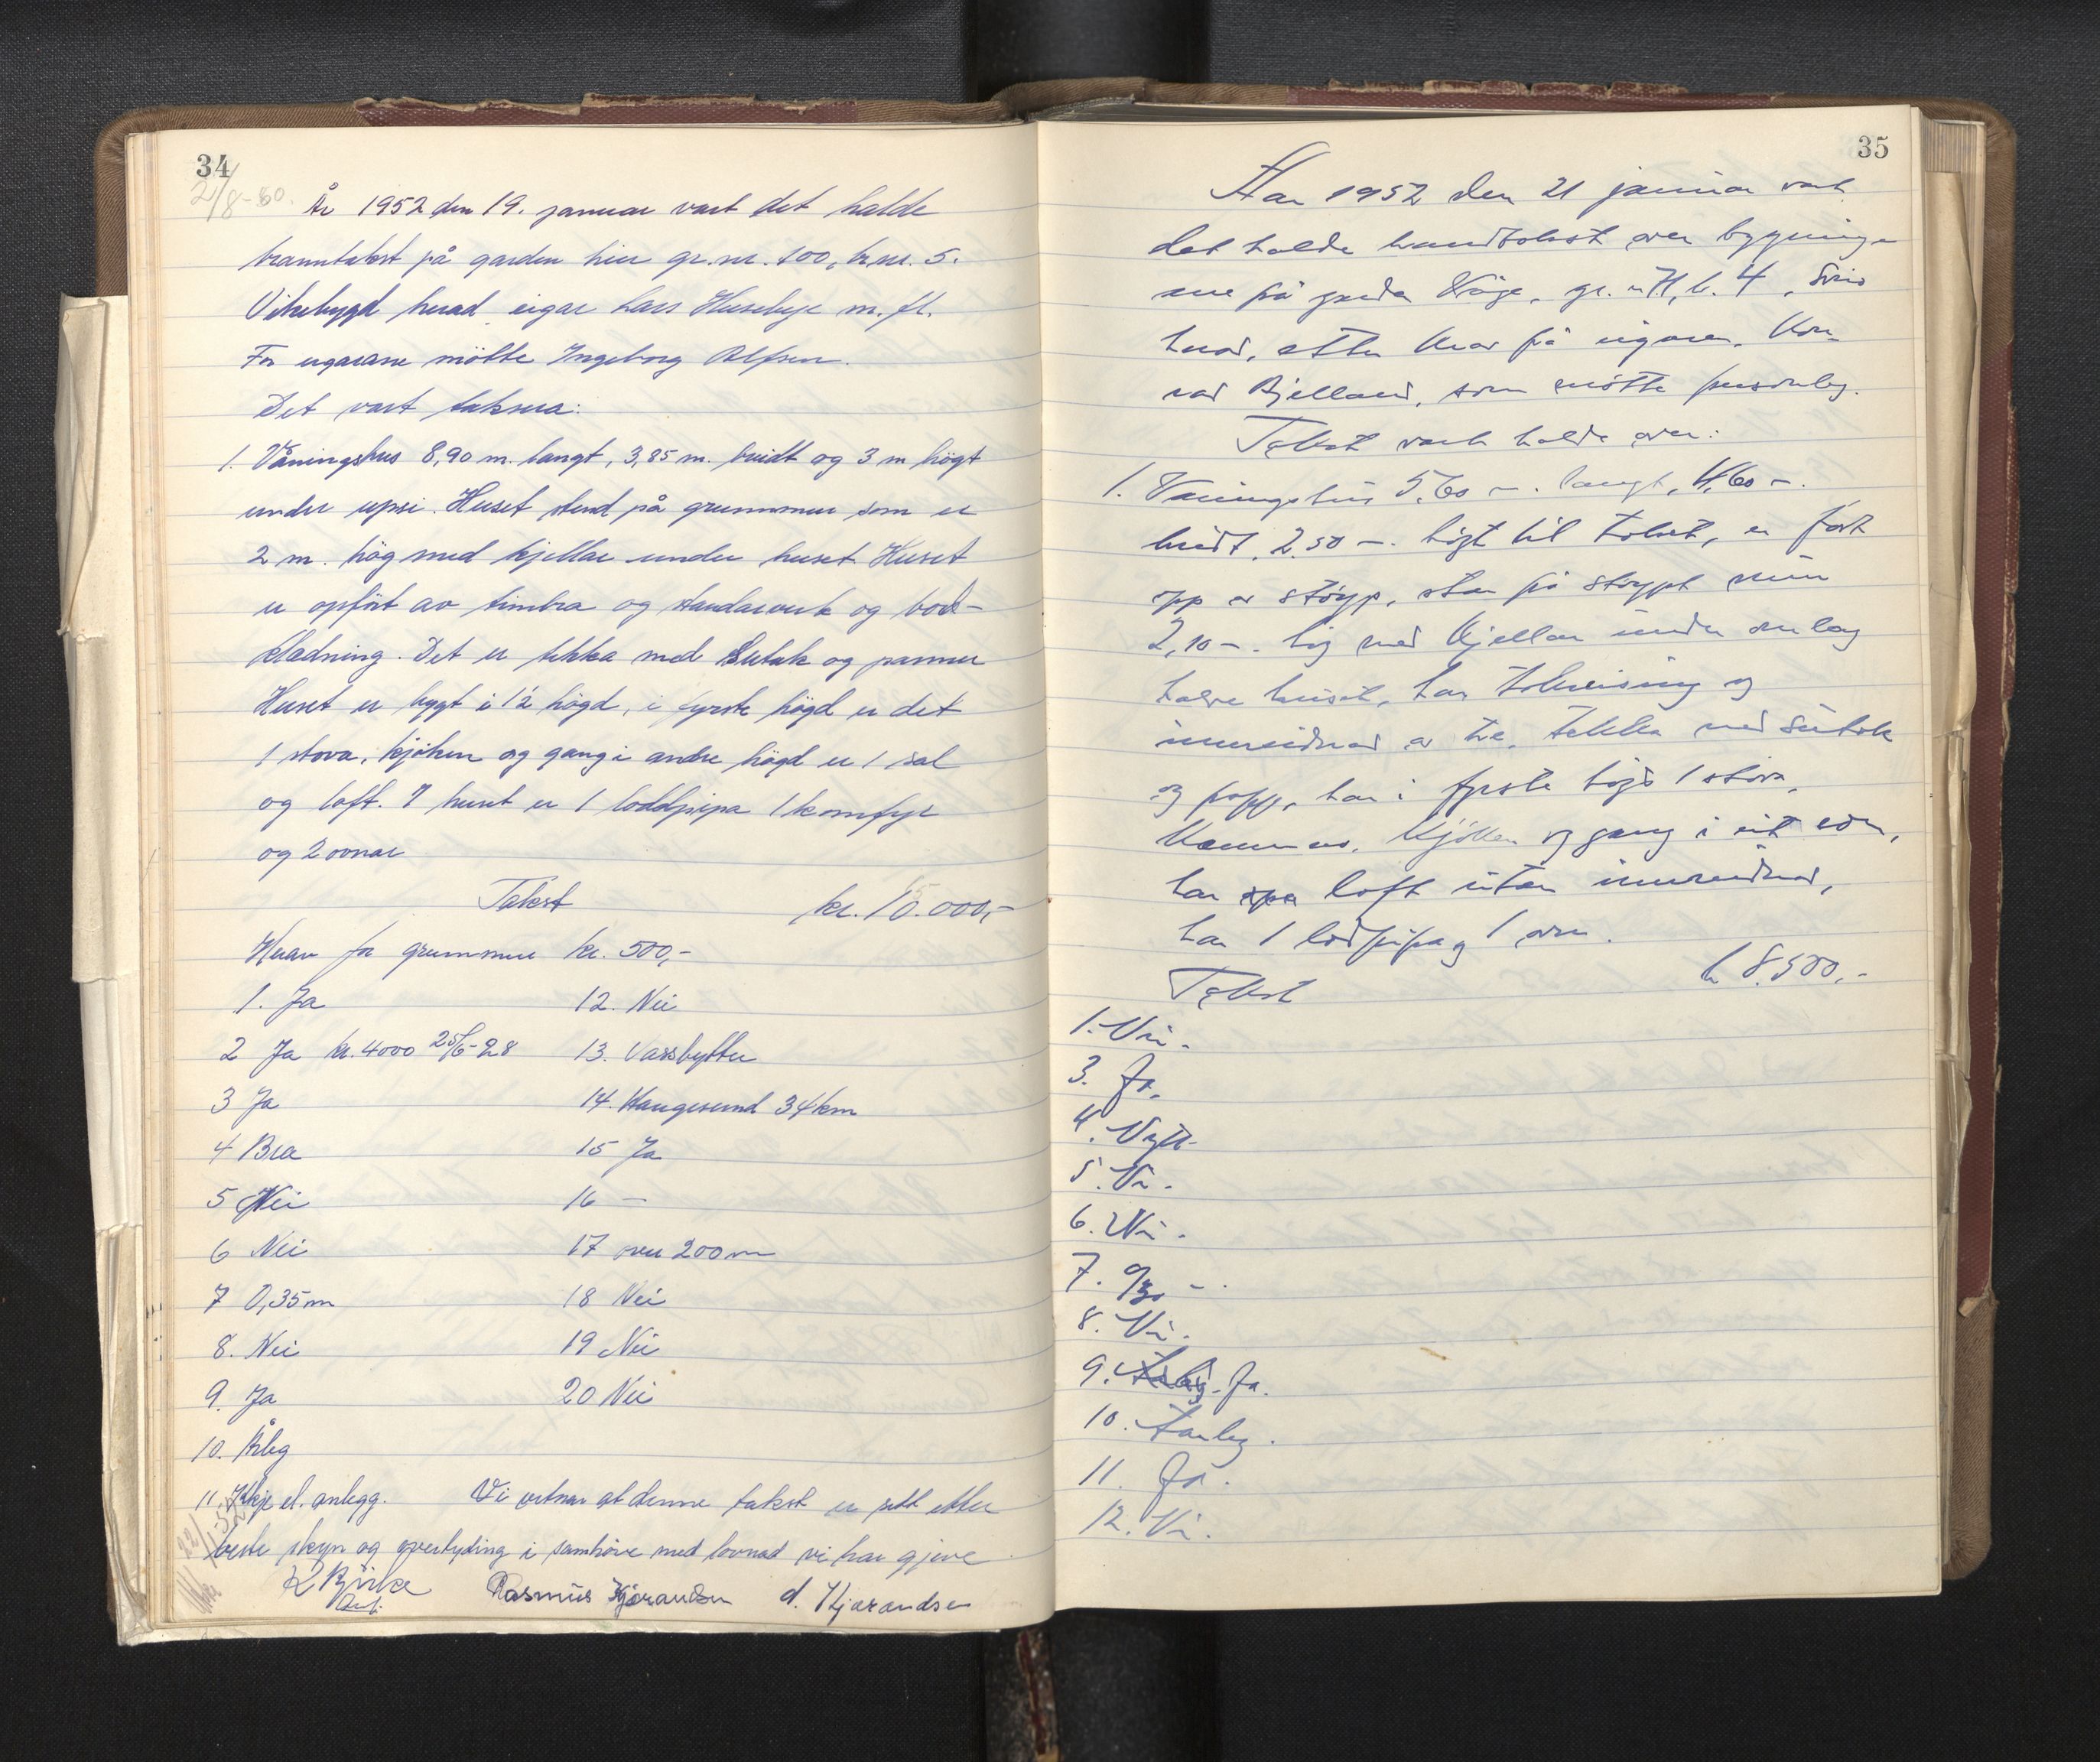 34
2/8-60.
År 1952 den 19. januar vart det halde
branntakst på garden hier gr.nr. 100, br.nr. 5.
Vikebygd herad eigar Lars Husebye m. fl.
For eigarane mötte Ingeborg Alfsen.
Det vart taksera:
1. Våningshus 8,90 m. langt, 3,85 m. breidt og 3 m högt
under upsi. Huset stend på grunnmur som er
2 m. hög med kjellar under huset. Huset
er opfört av timbra og standarverk og bord-
kledning. Det er tekka med sutak og panner
Huset er bygt i 1½ högd, i fyrste högd er det
1 stova, kjöken og gang i andre högd er 1 sal
og loft. I huset er 1 loddpipa 1 komfyr
og 2 ovnar
Takst kr. 10.000,-
Herav for grunnmur kr. 500,-
1. Ja 12. Nei
2 Ja kr. 4000 25/6-28 13. Vassbytter
3 Ja 14. Haugesund 34 km
4 Bra 15 Ja
5 Nei 16 —
6 Nei 17 over 200 m
7 0,35 m 18 Nei
8. Nei 19 Nei
9. Ja 20 Nei
10. Årleg
11. Ikkje el. anlegg. Vi vitnar at denne takst er sett etter
beste skyn og overtyding i samhöve med lovnad vi har gjeve
K Björke Rasmus Kjörandsen d. Kjorandsen
35
Aar 1952 den 21 januar vart
det halde branntakst over bygninga
ne på garden Våge, gr. n 71, b. 4,
herad, etter krav på eigaren, Kon-
rad Bjelland, som mötte personleg.
Takst vart halde over:
1. Våningshus 5,60 m. langt, 4,60 m.
breidt, 2,50 m. högt til taket, er fört
opp av stöyp, star på stöypt mur
2,10 m. hög med kjellar under om lag
halve huset, har takreising og
innreidnad av tre, tekka med sutak
og papp, har i fyrste högd 1 stova,
kammers, kjöken og gang i eit rom,
har loft utan innreidnad,
har 1 lodpipa og 1 ovn.
Takst kr 8.500,-
1. Nei.
3. Ja.
4. Nytt.
5. Nei.
6. Nei.
7. 0,30 m.
8. Nei.
9. Ja.
10. Aarleg.
11. Ja.
12. Nei.